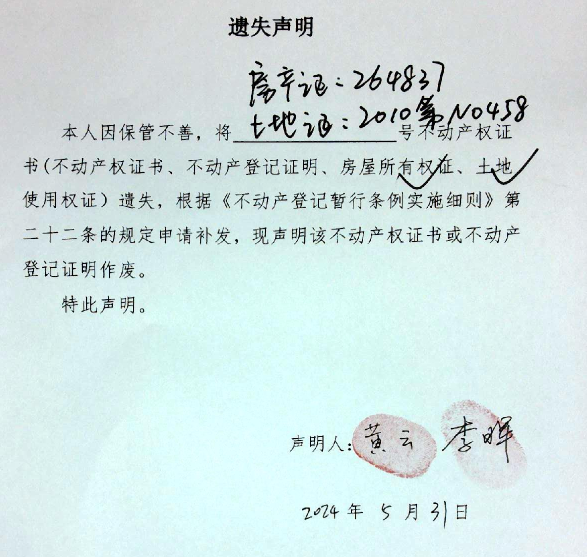 遗失声明
房产证：264837
土地证：2010第No458
本人因保管不善，将号不动产权证
书(不动产权证书、不动产登记证明、房屋所有权证、土地
使用权证）遗失，根据《不动产登记暂行条例实施细则》第
二十二条的规定申请补发，现声明该不动产权证书或不动产
登记证明作废。
特此声明。
声明人：黄云 李晖
2024年5月31日